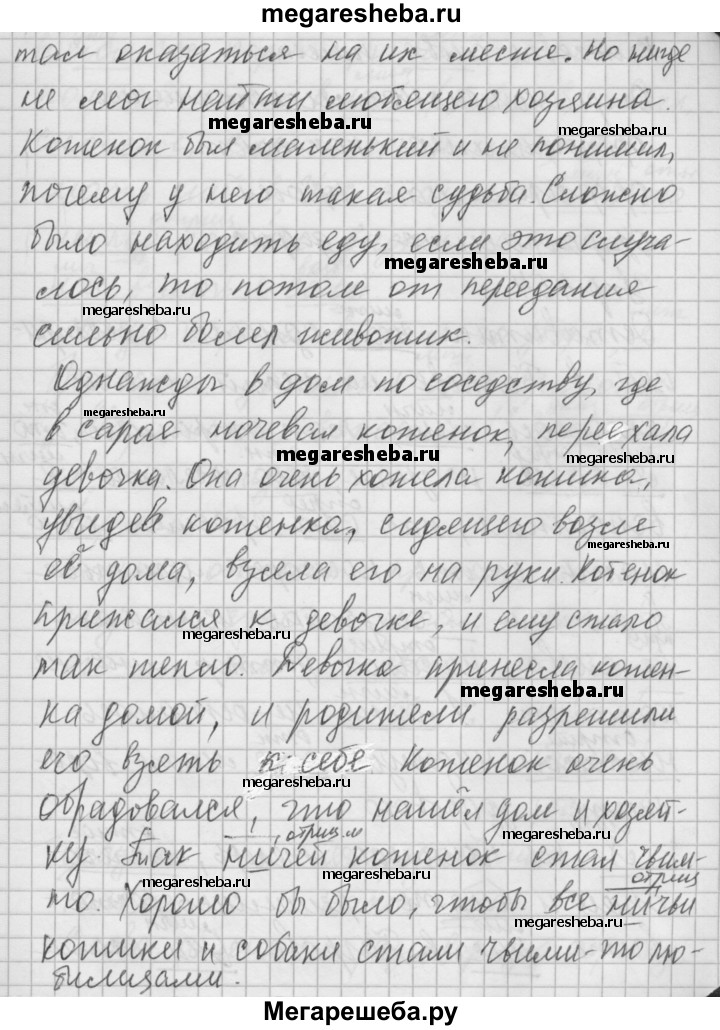 megaresheba.ru
тал оказаться на их месте. Но нигде
не мог найти любящего хозяина.
megaresheba.ru
megaresheba.ru
Котенок был маленький и не понимил,
почему у него такая судьба. Сложно
было находить еду, если это случа-
megaresheba.ru
лось, то потом от переедания
megaresheba.ru
сильно болел животик.
Однажды в дом по соседству, где
megaresheba.ru
в сарае ночевал котенок, переехала
megaresheba.ru
megaresheba.ru
девочка. Она очень хотела котика,
увидев котенка, сидящего возле
megaresheba.ru
её дома, взяла его на руки. Котенок
прижался к девочке, и ему стало
megaresheba.ru
так тепло. Девочка принесла котен-
megaresheba.ru
ка домой, и родители разрешили
его взять к себе. Котенок очень
megaresheba.ru
обрадовался, что нашёл дом и хозяй-
отриц. м
megaresheba.ru
ку. Так ничей котенок стал чьим-
megaresheba.ru
отриц
то. Хорошо бы было, чтобы все ничьи
megaresheba.ru
котики и собаки стали чьими-то лю-
бимицами.
Мегарешеба.ру